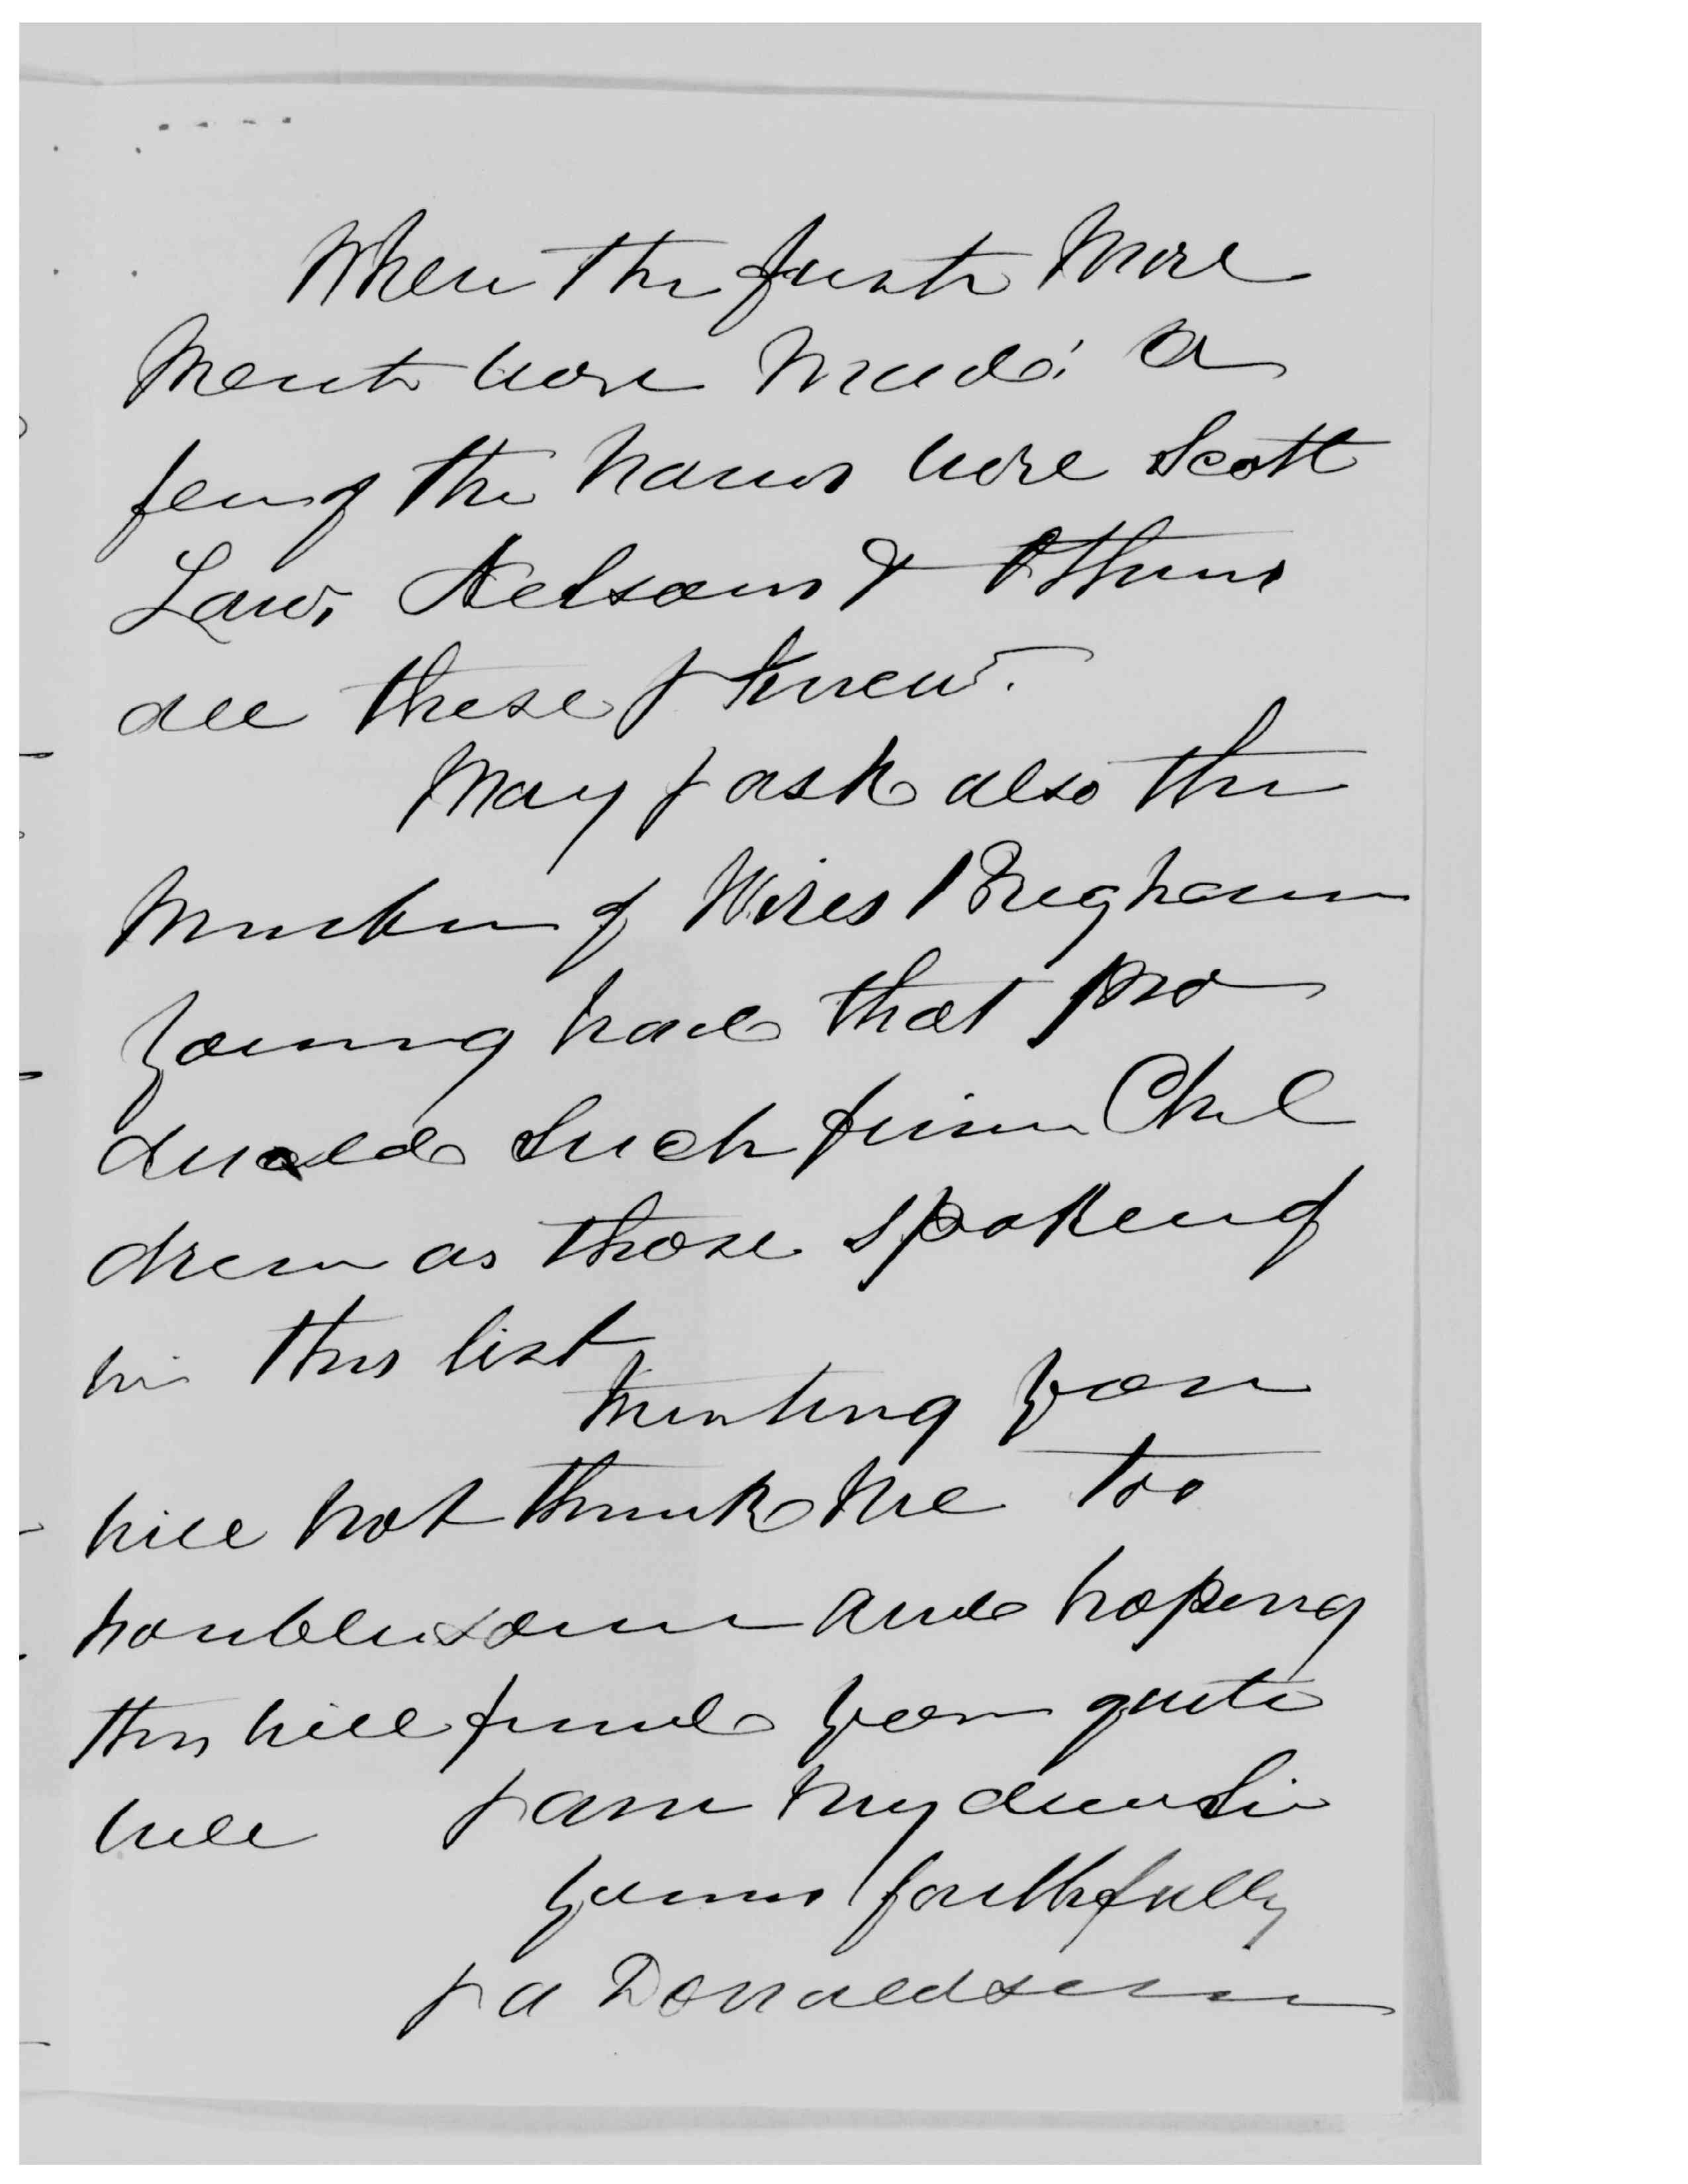 When the first Move
ment were Made! a
few of the names were Scott
Law, Nelsons & Others
all these I knew.
May I ask also the
Number of Wives Brigham
Young have that pro
duced such fine Chil
dren as those spoken of
in this list
trusting you
will not think me too
troublesome and hoping
this will find you quite
well I am my dear Sir
yours faithfully
J a Donaldson